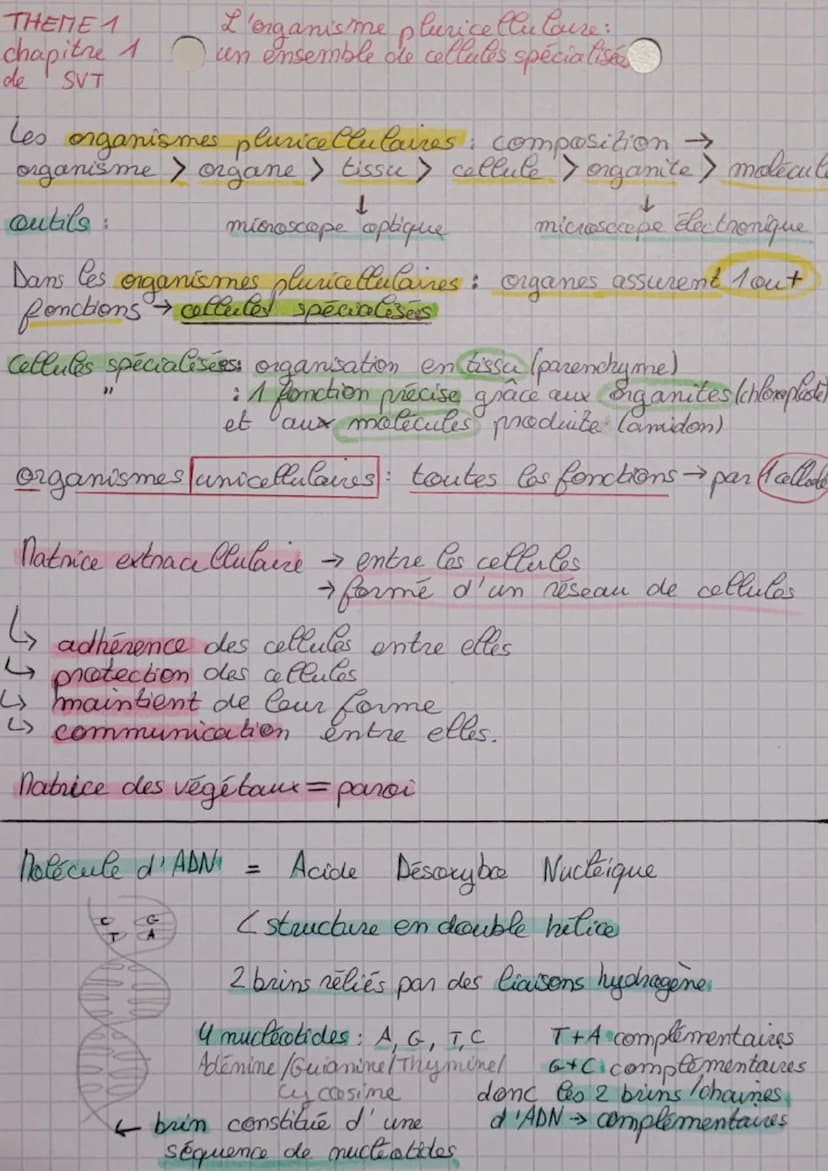 THEME 1
chapitre 1
de SVT
L'organisme pluricellulaire:
un ensemble de cellules spécialisée
Les organismes pluricellulaires : composition →
organisme > organe > tissu > cellule > organite > molécul
↓ ↓
outils : microscope optique microscope électronique
Dans les organismes pluricellulaires : organes assurent 1 ou +
fonctions → cellules spécialisées
Cellules spécialisées: organisation en tissu (parenchyme)
" : 1 fonction précise grâce aux organites (chloroplaste)
et aux molécules produite (amidon)
organismes unicellulaires : toutes les fonctions → par 1 cellule
Matrice extracellulaire → entre les cellules
→ formé d'un réseau de cellules
↳ adhérence des cellules entre elles
↳ protection des cellules
↳ maintient de leur forme
↳ communication entre elles.
Matrice des végétaux = paroi
Molécule d'ADN = Acide Désoxybo Nucléique
C G
T A
< structure en double hélice
2 brins réliés par des liaisons hydrogène
4 nucléotides : A, G, T, C
Adénine/Guianine/Thymine/
Cycosime
T+A complémentaires
G+C complémentaires
donc les 2 brins/chaînes
d'ADN → complémentaires
← brin constitué d'une
séquence de nucléotides